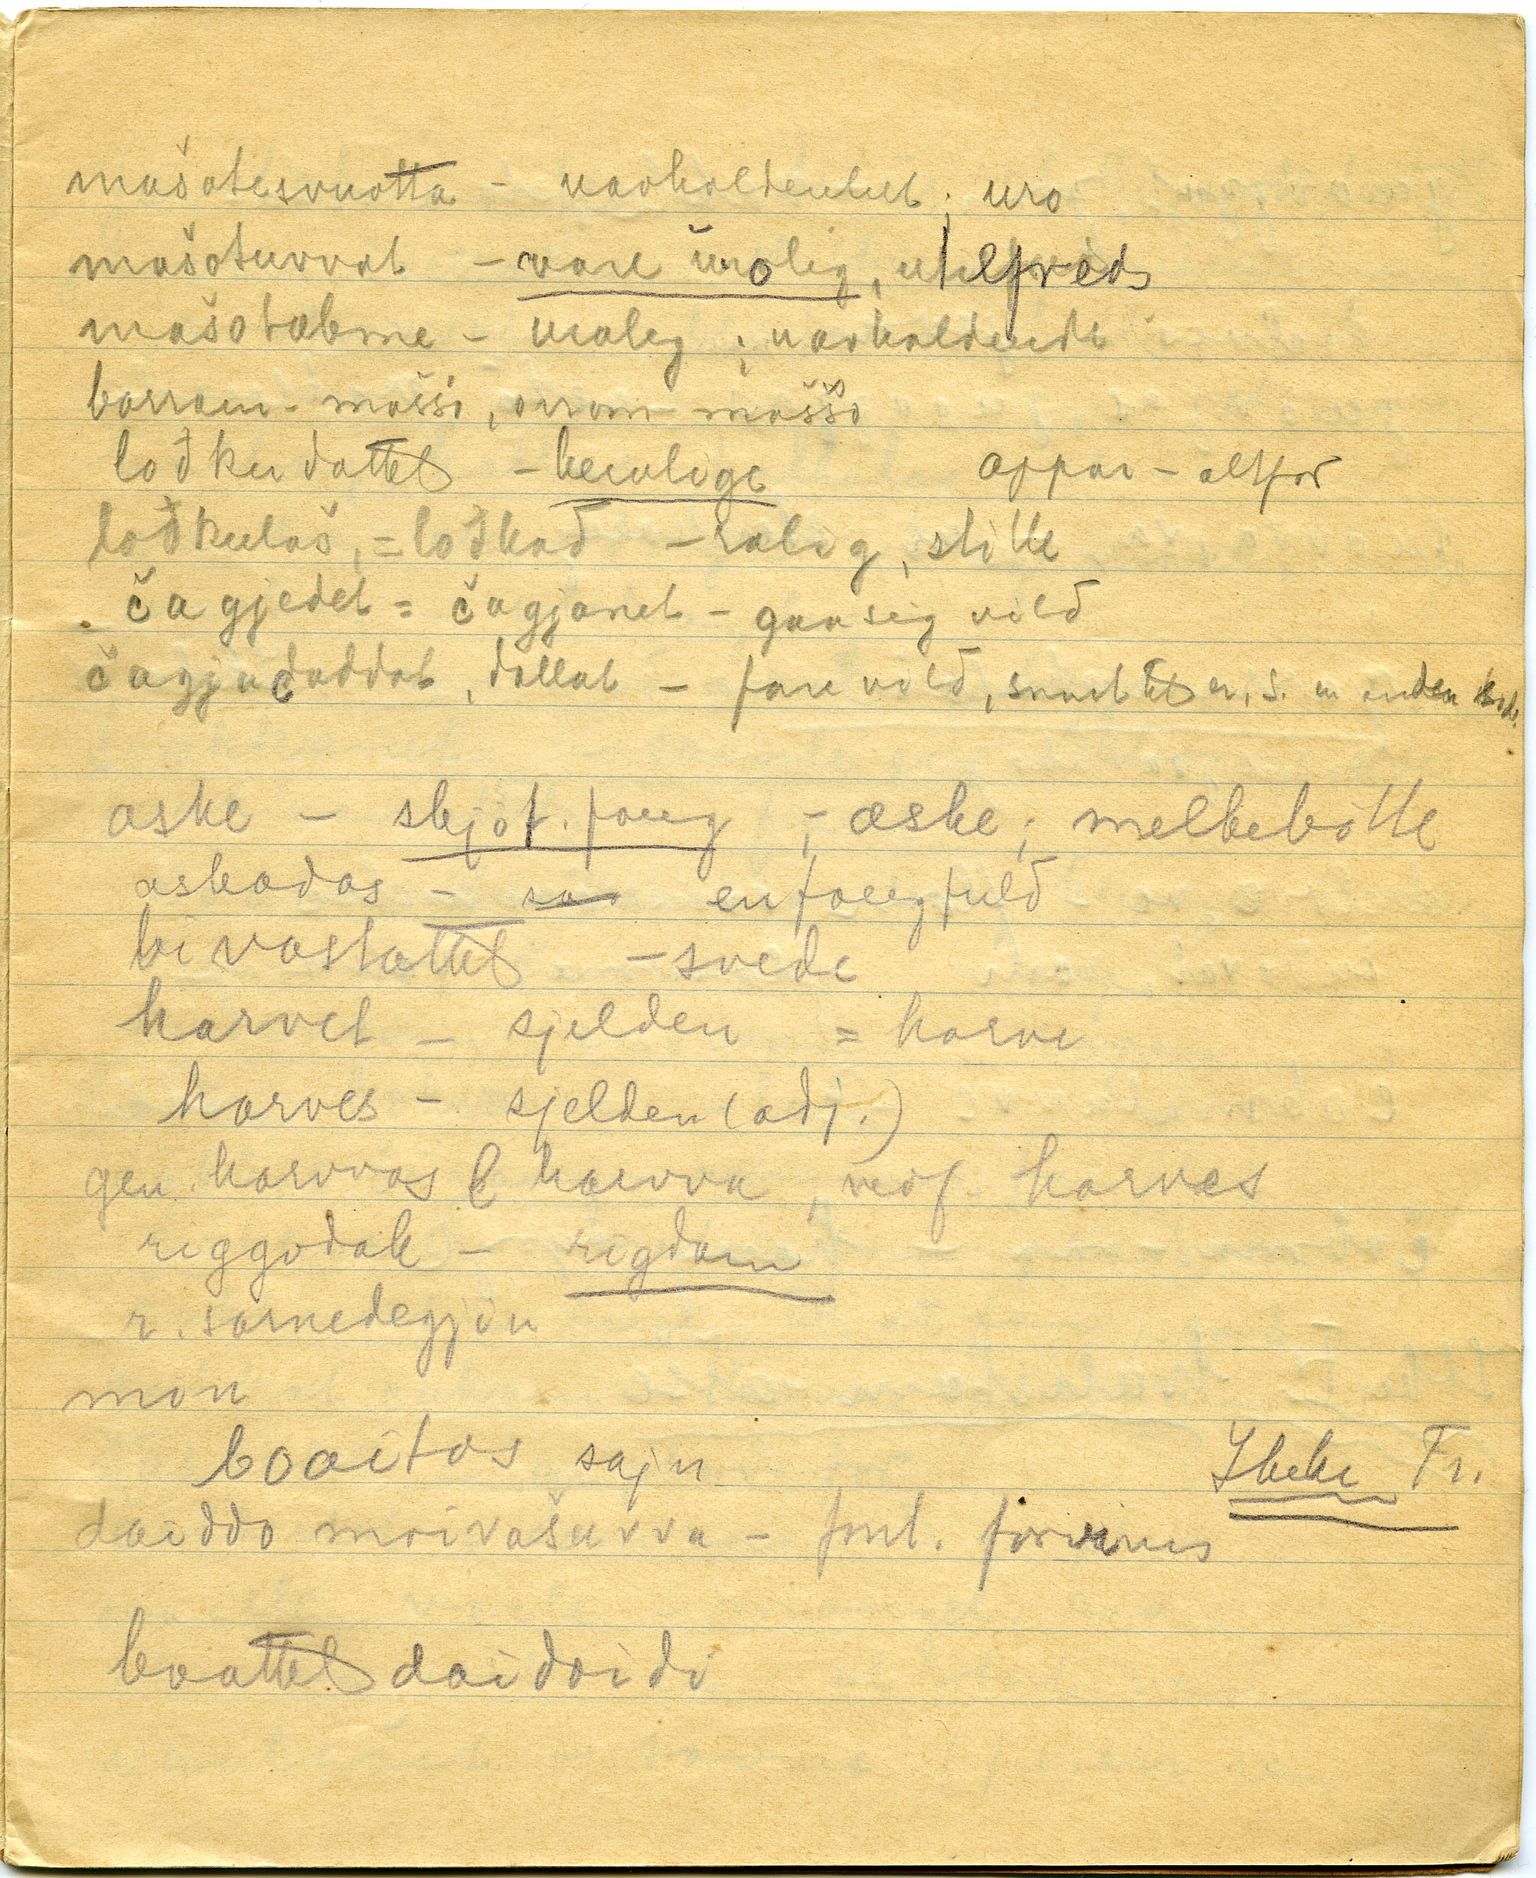 mašotesvuotta - uavholdenhet; uro
mašotuvvat - være urolig, utilfreds
mašotæbme - urolig; uavholdende
borram-maššo, orrom-maššo
lođkudattet - berolige appar - altfor
lođkulaš, = lođkad - rolig, stille
čagjedet = čagjanet - gaa sig vild
čagjadaddat, dallat - fare vild, snart er, s. en anden
aske - skjøt. fang; - æske; melkebøtte
askadas - en fangfuld
bivastattet - svede
harvet - sjelden = harve
harves - sjelden (adj.)
gen. harvvas harvva, harves
riggodak - rigdom
r. sarnedegjin
mon
boaitos saju Fr.
daiddo moivašuvva -
boattet daidoidi